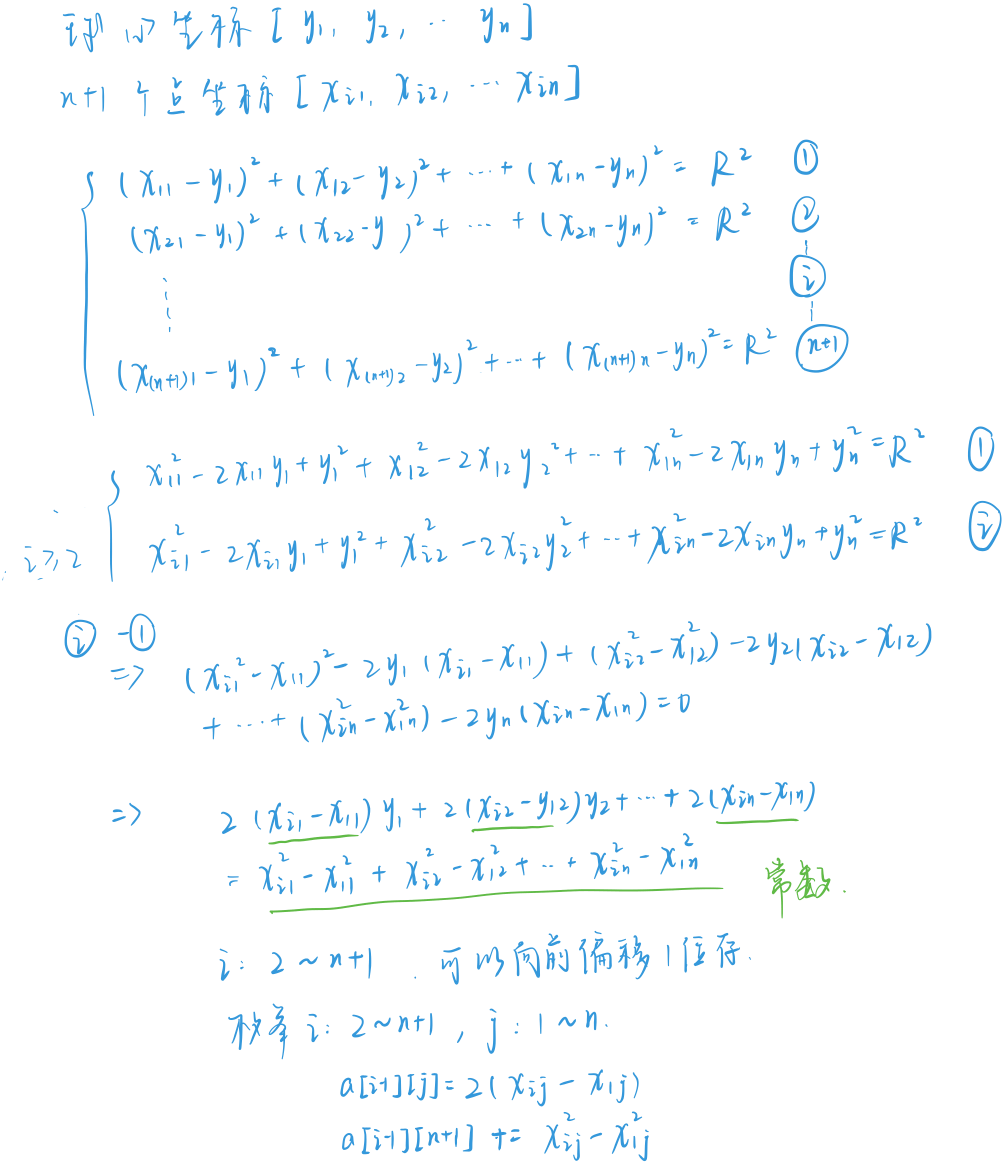 球心坐标 [ y₁, y₂, ‥ yₙ ]
n+1 个点坐标 [ xᵢ₁, xᵢ₂, ⋯ xᵢₙ ]
(x₁₁ - y₁)² + (x₁₂ - y₂)² + ⋯ + (x₁ₙ - yₙ)² = R² ①
(x₂₁ - y₁)² + (x₂₂ - y )² + ⋯ + (x₂ₙ - yₙ)² = R² ②
⋮ ⓘ
(x₍ₙ₊₁₎₁ - y₁)² + (x₍ₙ₊₁₎₂ - y₂)² + ⋯ + (x₍ₙ₊₁₎ₙ - yₙ)² = R² (n+1)
x₁₁² - 2x₁₁y₁ + y₁² + x₁₂² - 2x₁₂y₂² + ‥ + x₁ₙ² - 2x₁ₙyₙ + yₙ² = R² ①
i ≥ 2 xᵢ₁² - 2xᵢ₁y₁ + y₁² + xᵢ₂² - 2xᵢ₂y₂² + ‥ + xᵢₙ² - 2xᵢₙyₙ + yₙ² = R² ⓘ
ⓘ - ①
=> (xᵢ₁² - x₁₁)² - 2y₁(xᵢ₁ - x₁₁) + (xᵢ₂² - x₁₂²) - 2y₂(xᵢ₂ - x₁₂)
+ ⋯ + (xᵢₙ² - x₁ₙ²) - 2yₙ(xᵢₙ - x₁ₙ) = 0
=> 2(xᵢ₁ - x₁₁)y₁ + 2(xᵢ₂ - y₁₂)y₂ + ⋯ + 2(xᵢₙ - x₁ₙ)
= xᵢ₁² - x₁₁² + xᵢ₂² - x₁₂² + ‥ + xᵢₙ² - x₁ₙ² 常数.
i: 2 ~ n+1 . 可以向前偏移1位存.
枚举 i: 2 ~ n+1 , j: 1 ~ n.
a[i-1][j] = 2(xᵢⱼ - x₁ⱼ)
a[i-1][n+1] += xᵢⱼ² - x₁ⱼ²